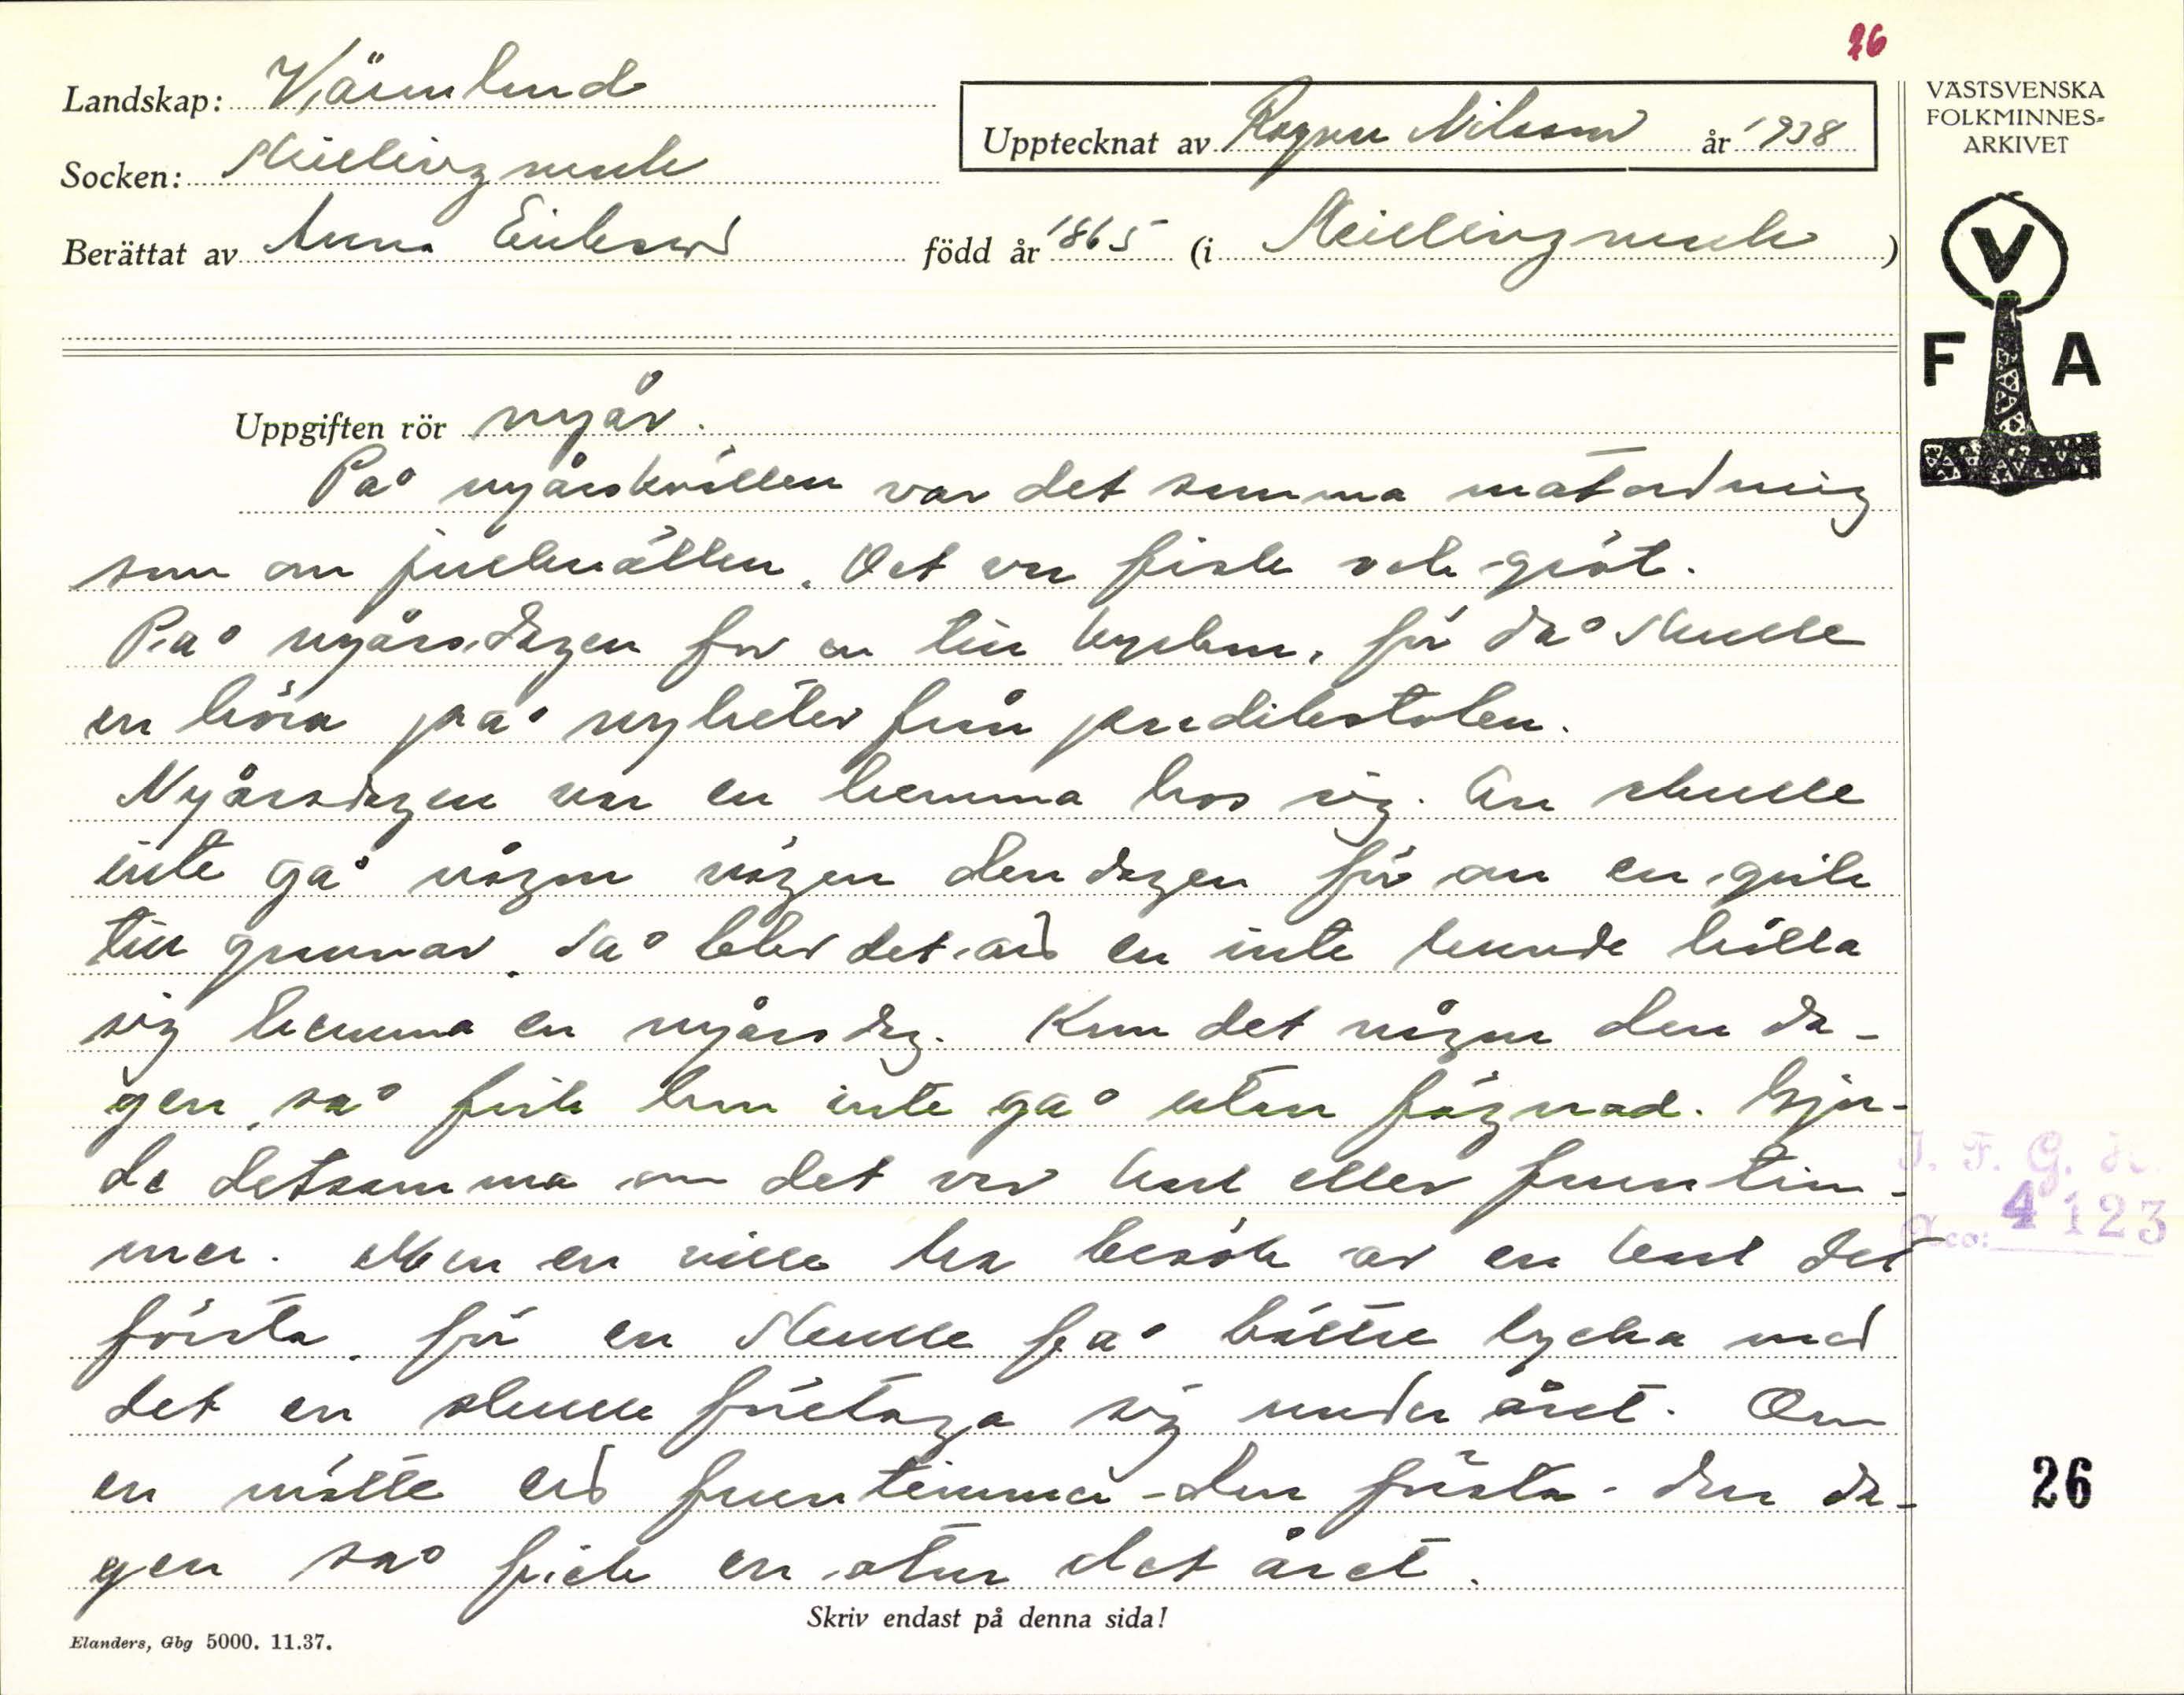 26
Landskap: Värmland
Upptecknat av Ragnar Nilsson år 1938
VÄSTSVENSKA
FOLKMINNES=
ARKIVET
Socken: Skillingmark
Berättat av Anna Eriksson född år 1865 (i Skillingmark)
V
F A
Uppgiften rör nyår.
På nyårskvällen var det samma matordning
som om julkvällen. Det var fisk och gröt.
På nyårsdagen for en till kyrkan, för då skulle
en höra på nyheter från predikstolen.
Nyårsdagen var en hemma hos sig. En skulle
inte gå någon vägen den dagen för om en gick
till grannar. Då blev det att en inte kunde hålla
sig hemma en nyårsdag. Kom det någon den da-
gen, så fick han inte gå utan fägnad. Gjor-
de detsamma om det var karl eller fruntim-
mer. Men en ville ha besök av en karl det
första, för en skulle få bättre lycka med
det en skulle företaga sig under året. Om
en mötte ett fruntimmer den första den da-
gen så fick en otur det året.
I. F. G. H.
Acc: 4123
26
Skriv endast på denna sida!
Elanders, Gbg 5000. 11.37.